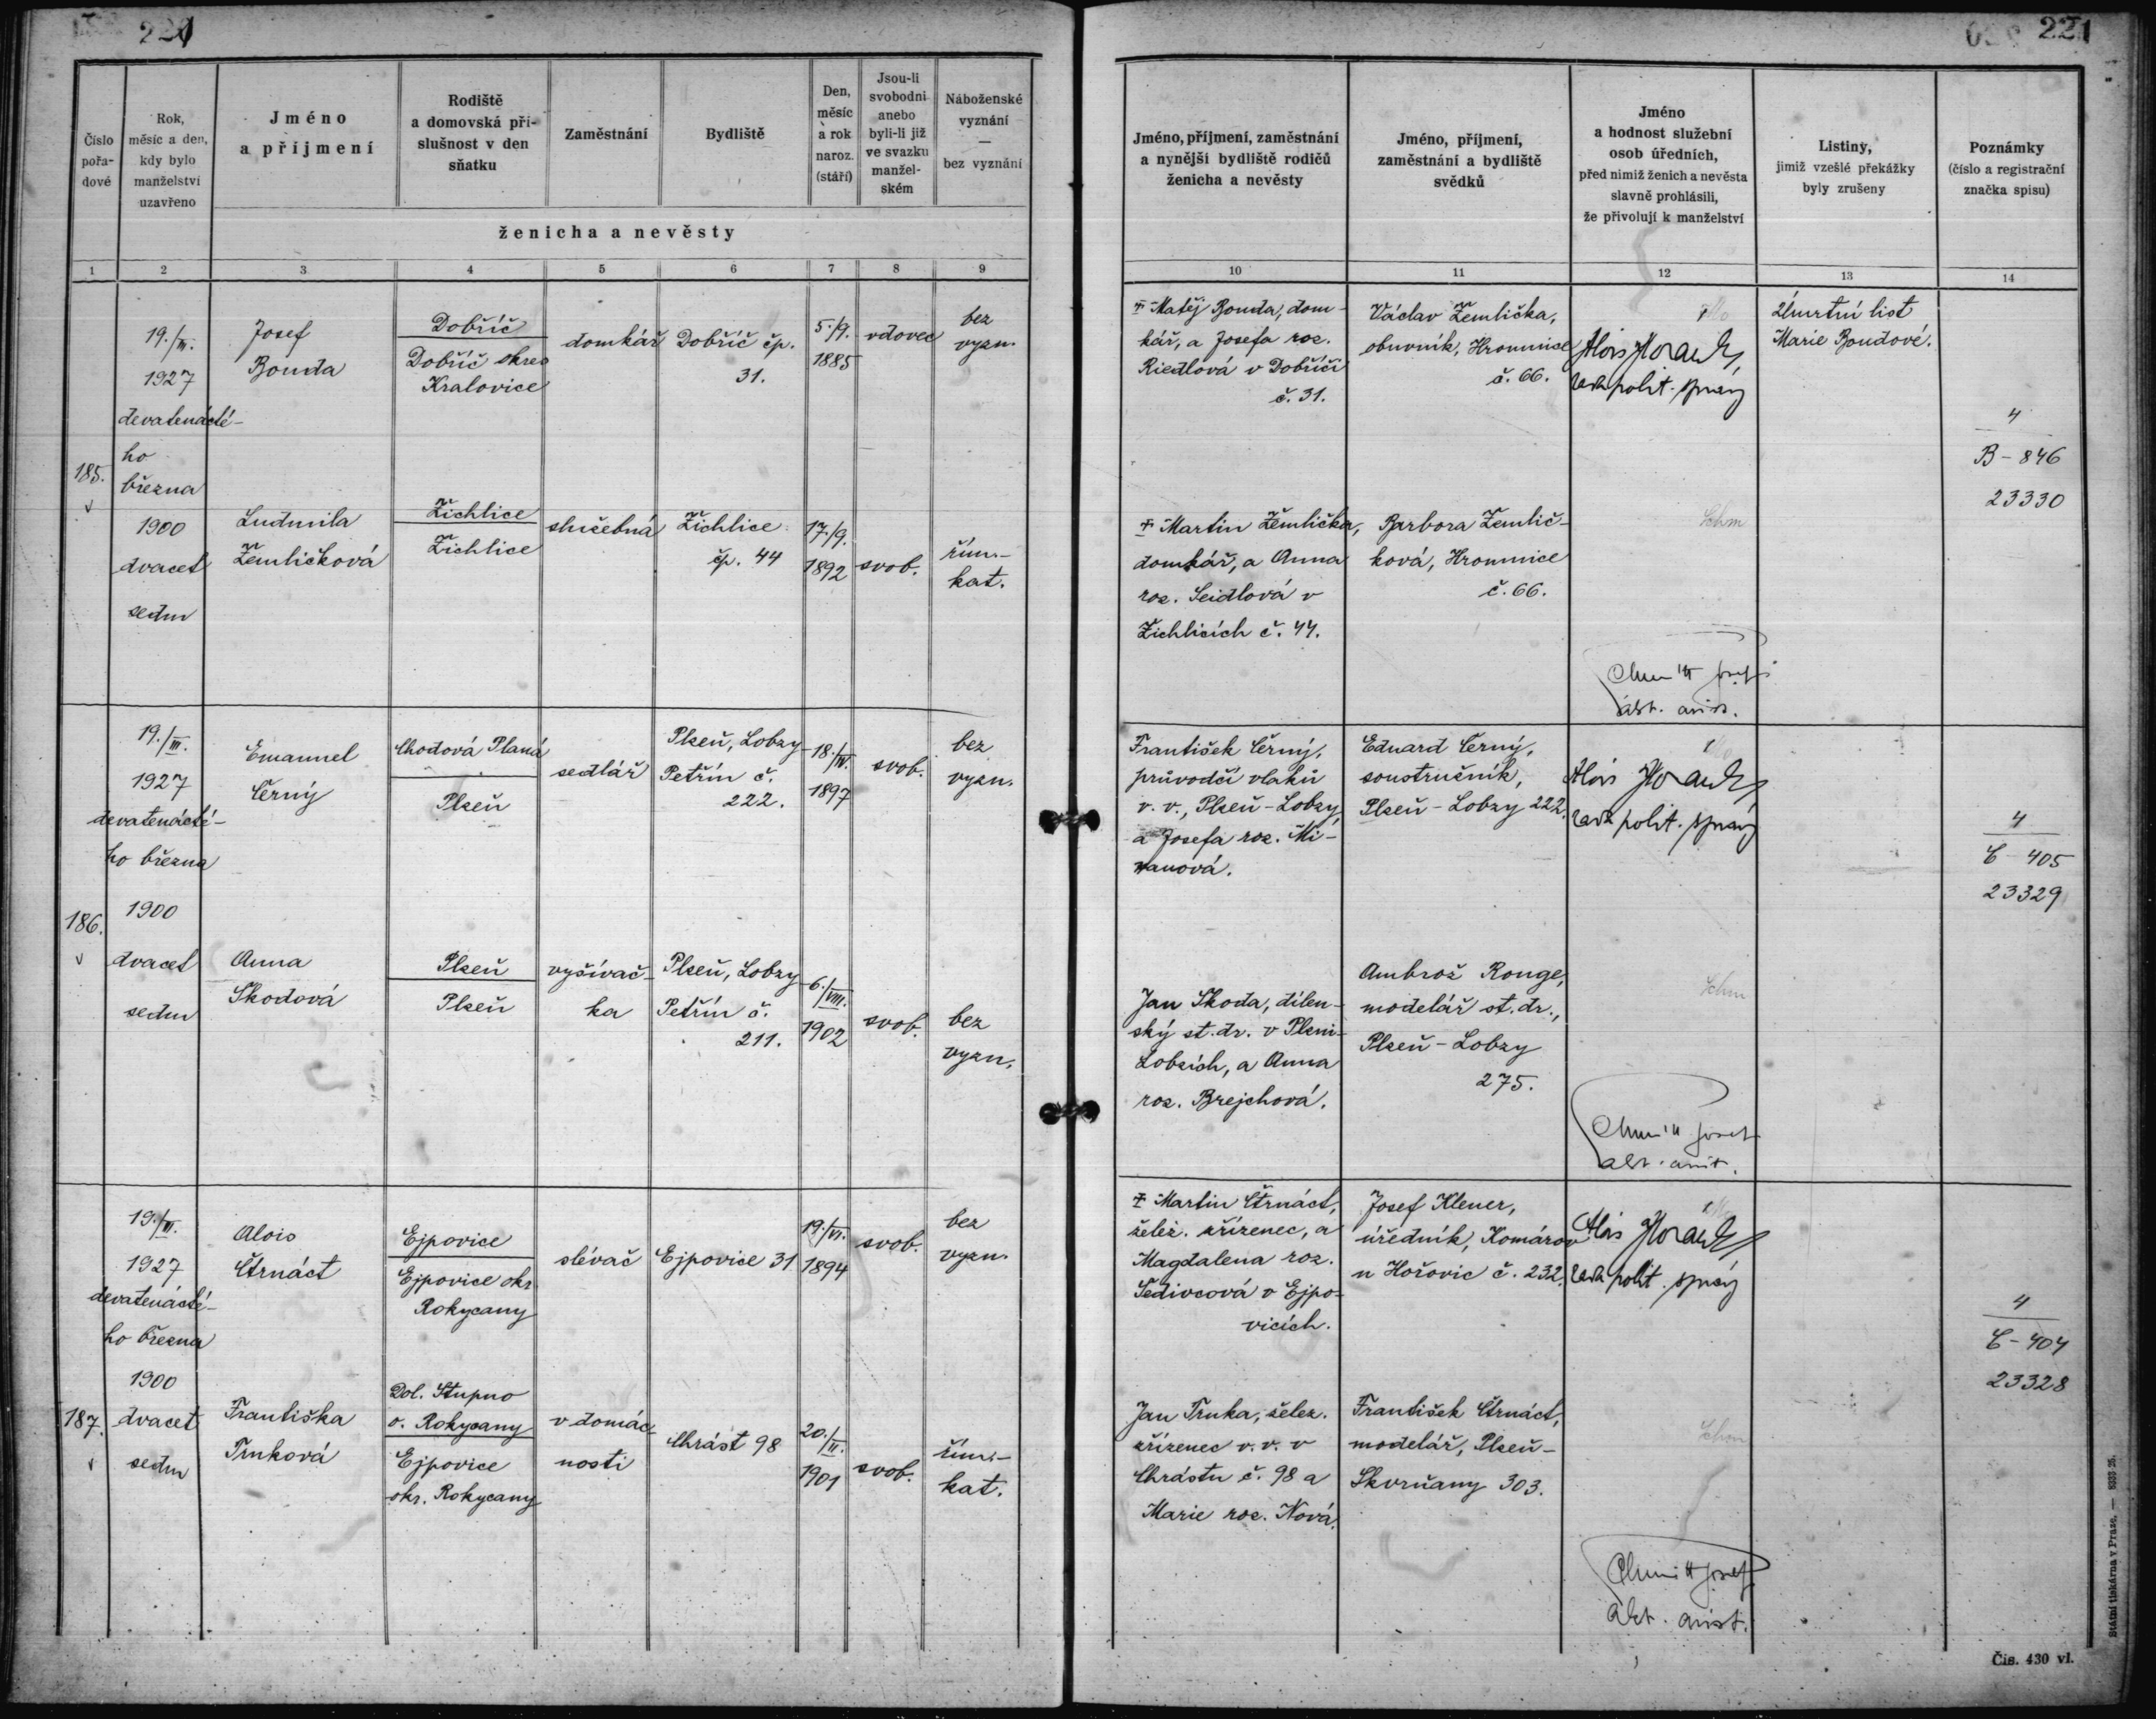 221
221
Číslo pořadové
Rok, měsíc a den, kdy bylo manželství uzavřeno
Jméno a příjmení
Rodiště a domovská příslušnost v den sňatku
Zaměstnání
Bydliště
Den, měsíc a rok naroz. (stáří)
Jsou-li svobodni anebo byli-li již ve svazku manželském
Náboženské vyznání — bez vyznání
ženicha a nevěsty
1 2 3 4 5 6 7 8 9
Jméno, příjmení, zaměstnání a nynější bydliště rodičů ženicha a nevěsty
Jméno, příjmení, zaměstnání a bydliště svědků
Jméno a hodnost služební osob úředních, před nimiž ženich a nevěsta slavně prohlásili, že přivolují k manželství
Listiny, jimiž vzešlé překážky byly zrušeny
Poznámky (číslo a registrační značka spisu)
10 11 12 13 14
185.
19./III.
1927
devatenácté-
ho
března
1900
dvacet
sedm
Josef
Bouda
Dobříč
Dobříč okres
Kralovice
domkář
Dobříč čp.
31.
5./9.
1885
vdovec
bez
vyzn.
Ludmila
Žemličková
Žichlice
Žichlice
služebná
Žichlice
čp. 44
17./9.
1892
svob.
řím.-
kat.
Matěj Bouda, dom-
kář, a Josefa roz.
Riedlová v Dobříči
č. 31.
Václav Žemlička,
obuvník, Hromnice
č. 66.
Alois
rada polit. správy
Úmrtní list
Marie Boudové.
4
B - 846
23330
Martin Žemlička,
domkář, a Anna
roz. Seidlová v
Žichlicích č. 44.
Barbora Žemlič-
ková, Hromnice
č. 66.
Schm
Josef
186.
19./III.
1927
devatenácté-
ho března
1900
dvacet
sedm
Emanuel
Černý
Chodová Planá
Plzeň
sedlář
Plzeň, Lobzy
Petřín č.
222.
18./IV.
1897
svob.
bez
vyzn.
Anna
Škodová
Plzeň
Plzeň
vyšívač-
ka
Plzeň, Lobzy
Petřín č.
211.
6./VIII.
1902
svob.
bez
vyzn.
František Černý,
průvodčí vlaků
v. v., Plzeň - Lobzy
a Josefa roz. Mi-
Eduard Černý,
soustružník,
Plzeň - Lobzy 222.
Alois
rada polit. správy
4
Č - 405
23329
Jan Škoda, dílen-
ský st. dr. v Plzni-
Lobzích, a Anna
roz. Brejchová.
Ambrož Rouge,
modelář st. dr.,
Plzeň - Lobzy
275.
Schm
Josef
187.
19./III.
1927
devatenácté-
ho března
1900
dvacet
sedm
Alois
Čtrnáct
Ejpovice
Ejpovice okr.
Rokycany
slévač
Ejpovice 31
19./VI.
1894
svob.
bez
vyzn.
Františka
Trnková
Dol. Stupno
o. Rokycany
Ejpovice
okr. Rokycany
v domác-
nosti
Chrást 98
20./II.
1901
svob.
řím.-
kat.
Martin Čtrnáct,
želez. zřízenec, a
Magdalena roz.
Šedivcová v Ejpo-
vicích.
Josef Klener,
úředník, Komárov
u Hořovic č. 232.
Alois
rada polit. správy
4
Č - 404
23328
Jan Trnka, želez.
zřízenec v. v. v
Chrástu č. 98 a
Marie roz. Nová.
František Čtrnáct,
modelář, Plzeň -
Skvrňany 303.
Schm
Josef
Státní tiskárna v Praze. — 8333-25.
Čís. 430 vl.